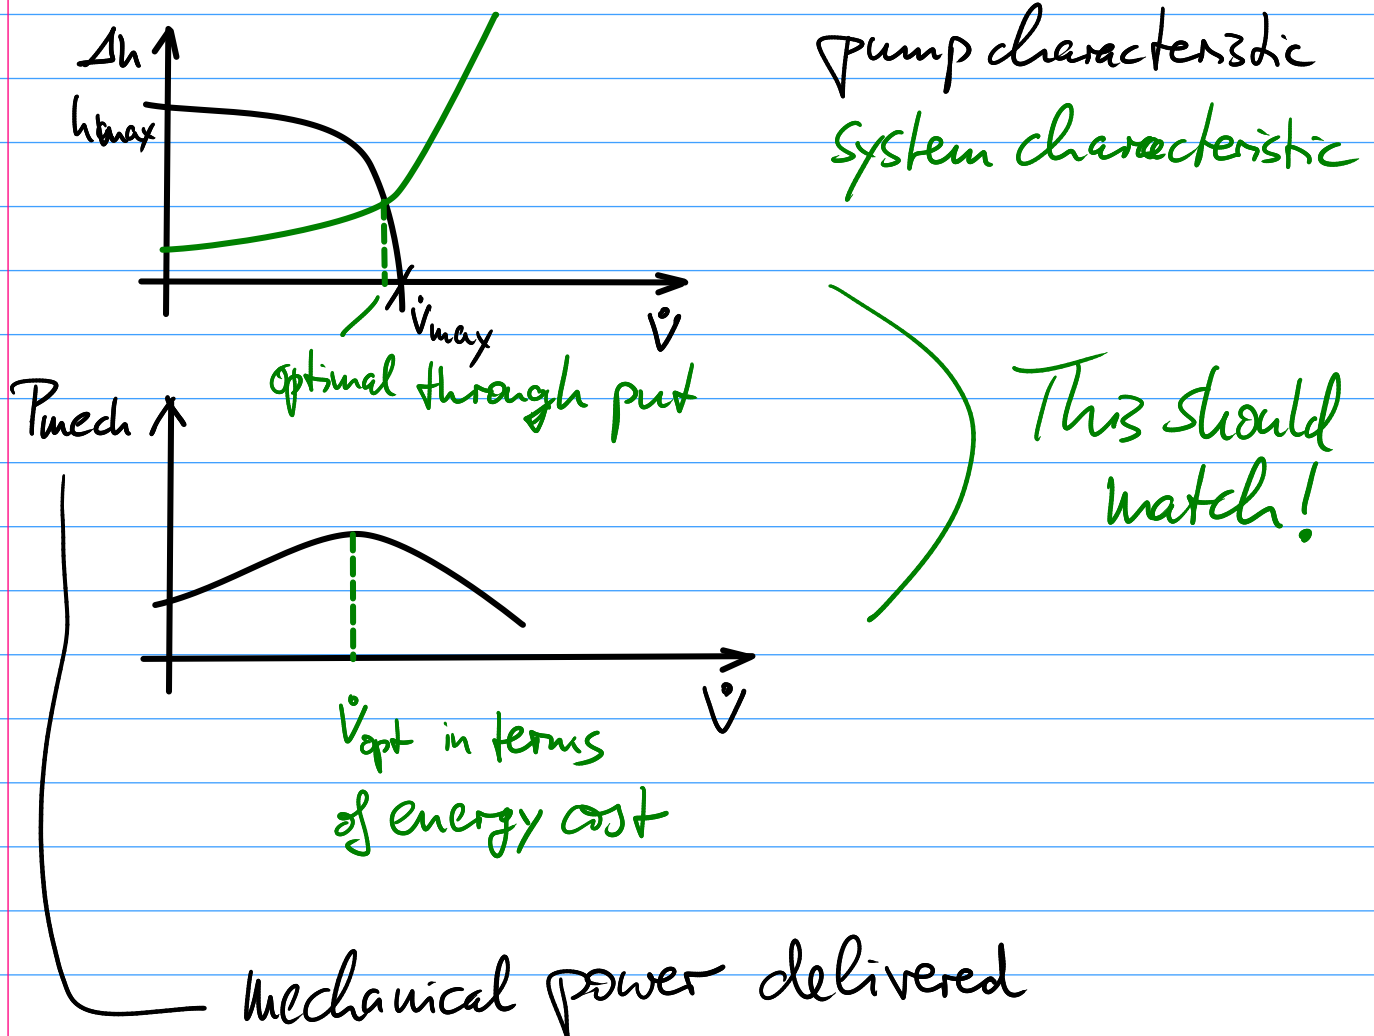 Δh
pump characteristic
hmax
system characteristic
V̇max
V̇
optimal through put
Pmech
This should
match!
V̇
V̇opt in terms
of energy cost
mechanical power delivered